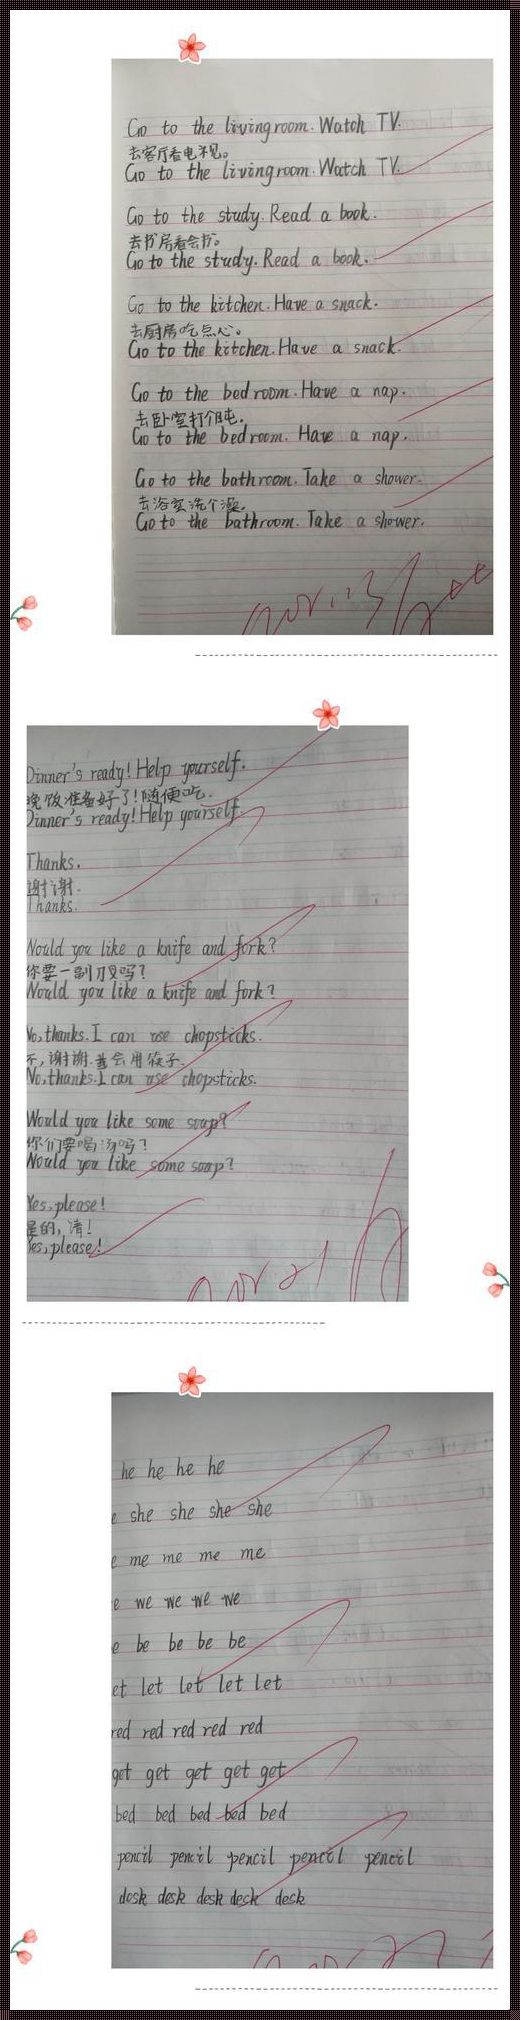 Go to the livingroom. Watch TV.
去客厅看电视。
Go to the livingroom. Watch TV.
Go to the study. Read a book.
去书房看会书。
Go to the study. Read a book.
Go to the kitchen. Have a snack.
去厨房吃点心。
Go to the kitchen. Have a snack.
Go to the bedroom. Have a nap.
去卧室打个盹。
Go to the bedroom. Have a nap.
Go to the bathroom. Take a shower.
去浴室洗个澡。
Go to the bathroom. Take a shower.
Dinner's ready! Help yourself.
晚饭准备好了!随便吃.
Dinner's ready! Help yourself.
Thanks.
谢谢.
Thanks.
Would you like a knife and fork?
你要一副刀叉吗?
Would you like a knife and fork?
No, thanks. I can use chopsticks.
不,谢谢.我会用筷子.
No, thanks. I can use chopsticks.
Would you like some soup?
你们要喝汤吗?
Would you like some soup?
Yes, please!
是的,请!
Yes, please!
he he he he
e she she she she
e me me me me
e we we we we
e be be be be
et let let let let
red red red red red
get get get get get
bed bed bed bed bed
pencil pencil pencil pencil pencil
desk desk desk desk desk